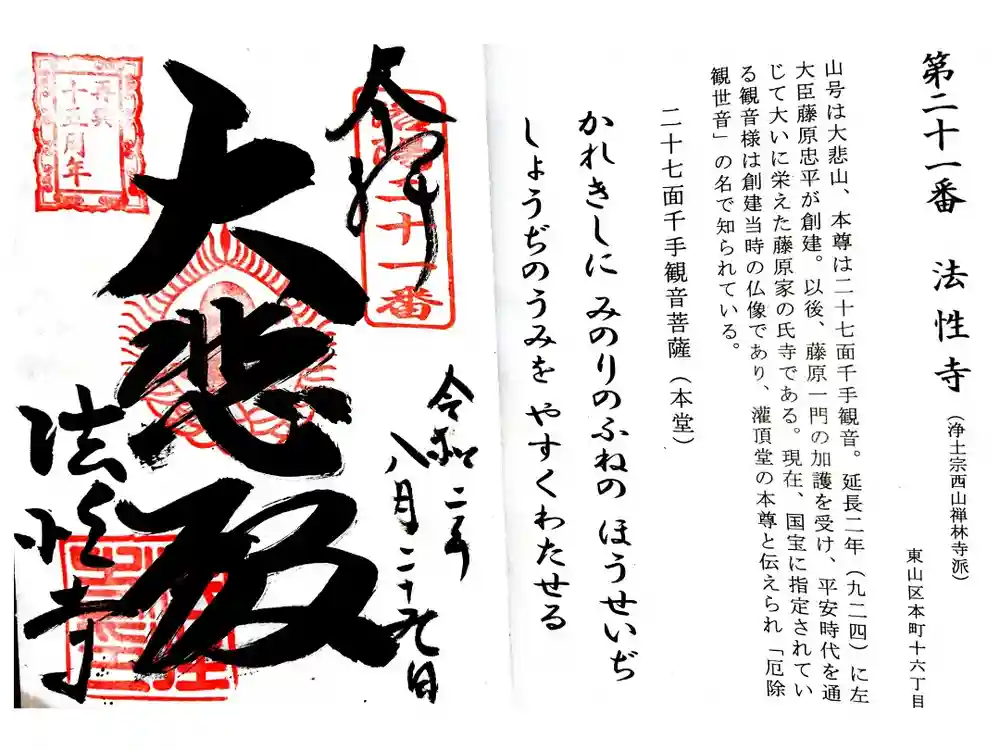 第二十一番　法性寺（浄土宗西山禅林寺派）
東山区本町十六丁目
山号は大悲山、本尊は二十七面千手観音。延長二年（九二四）に左
大臣藤原忠平が創建。以後、藤原一門の加護を受け、平安時代を通
じて大いに栄えた藤原家の氏寺である。現在、国宝に指定されてい
る観音様は創建当時の仏像であり、灌頂堂の本尊と伝えられ「厄除
観世音」の名で知られている。
二十七面千手観音菩薩（本堂）
かれきしに みのりのふねの ほうせいぢ
しょうぢのうみを やすくわたせる
奉拝
洛陽二十一番
令和二年
八月二十九日
大悲殿
法性寺
再興
十五周年